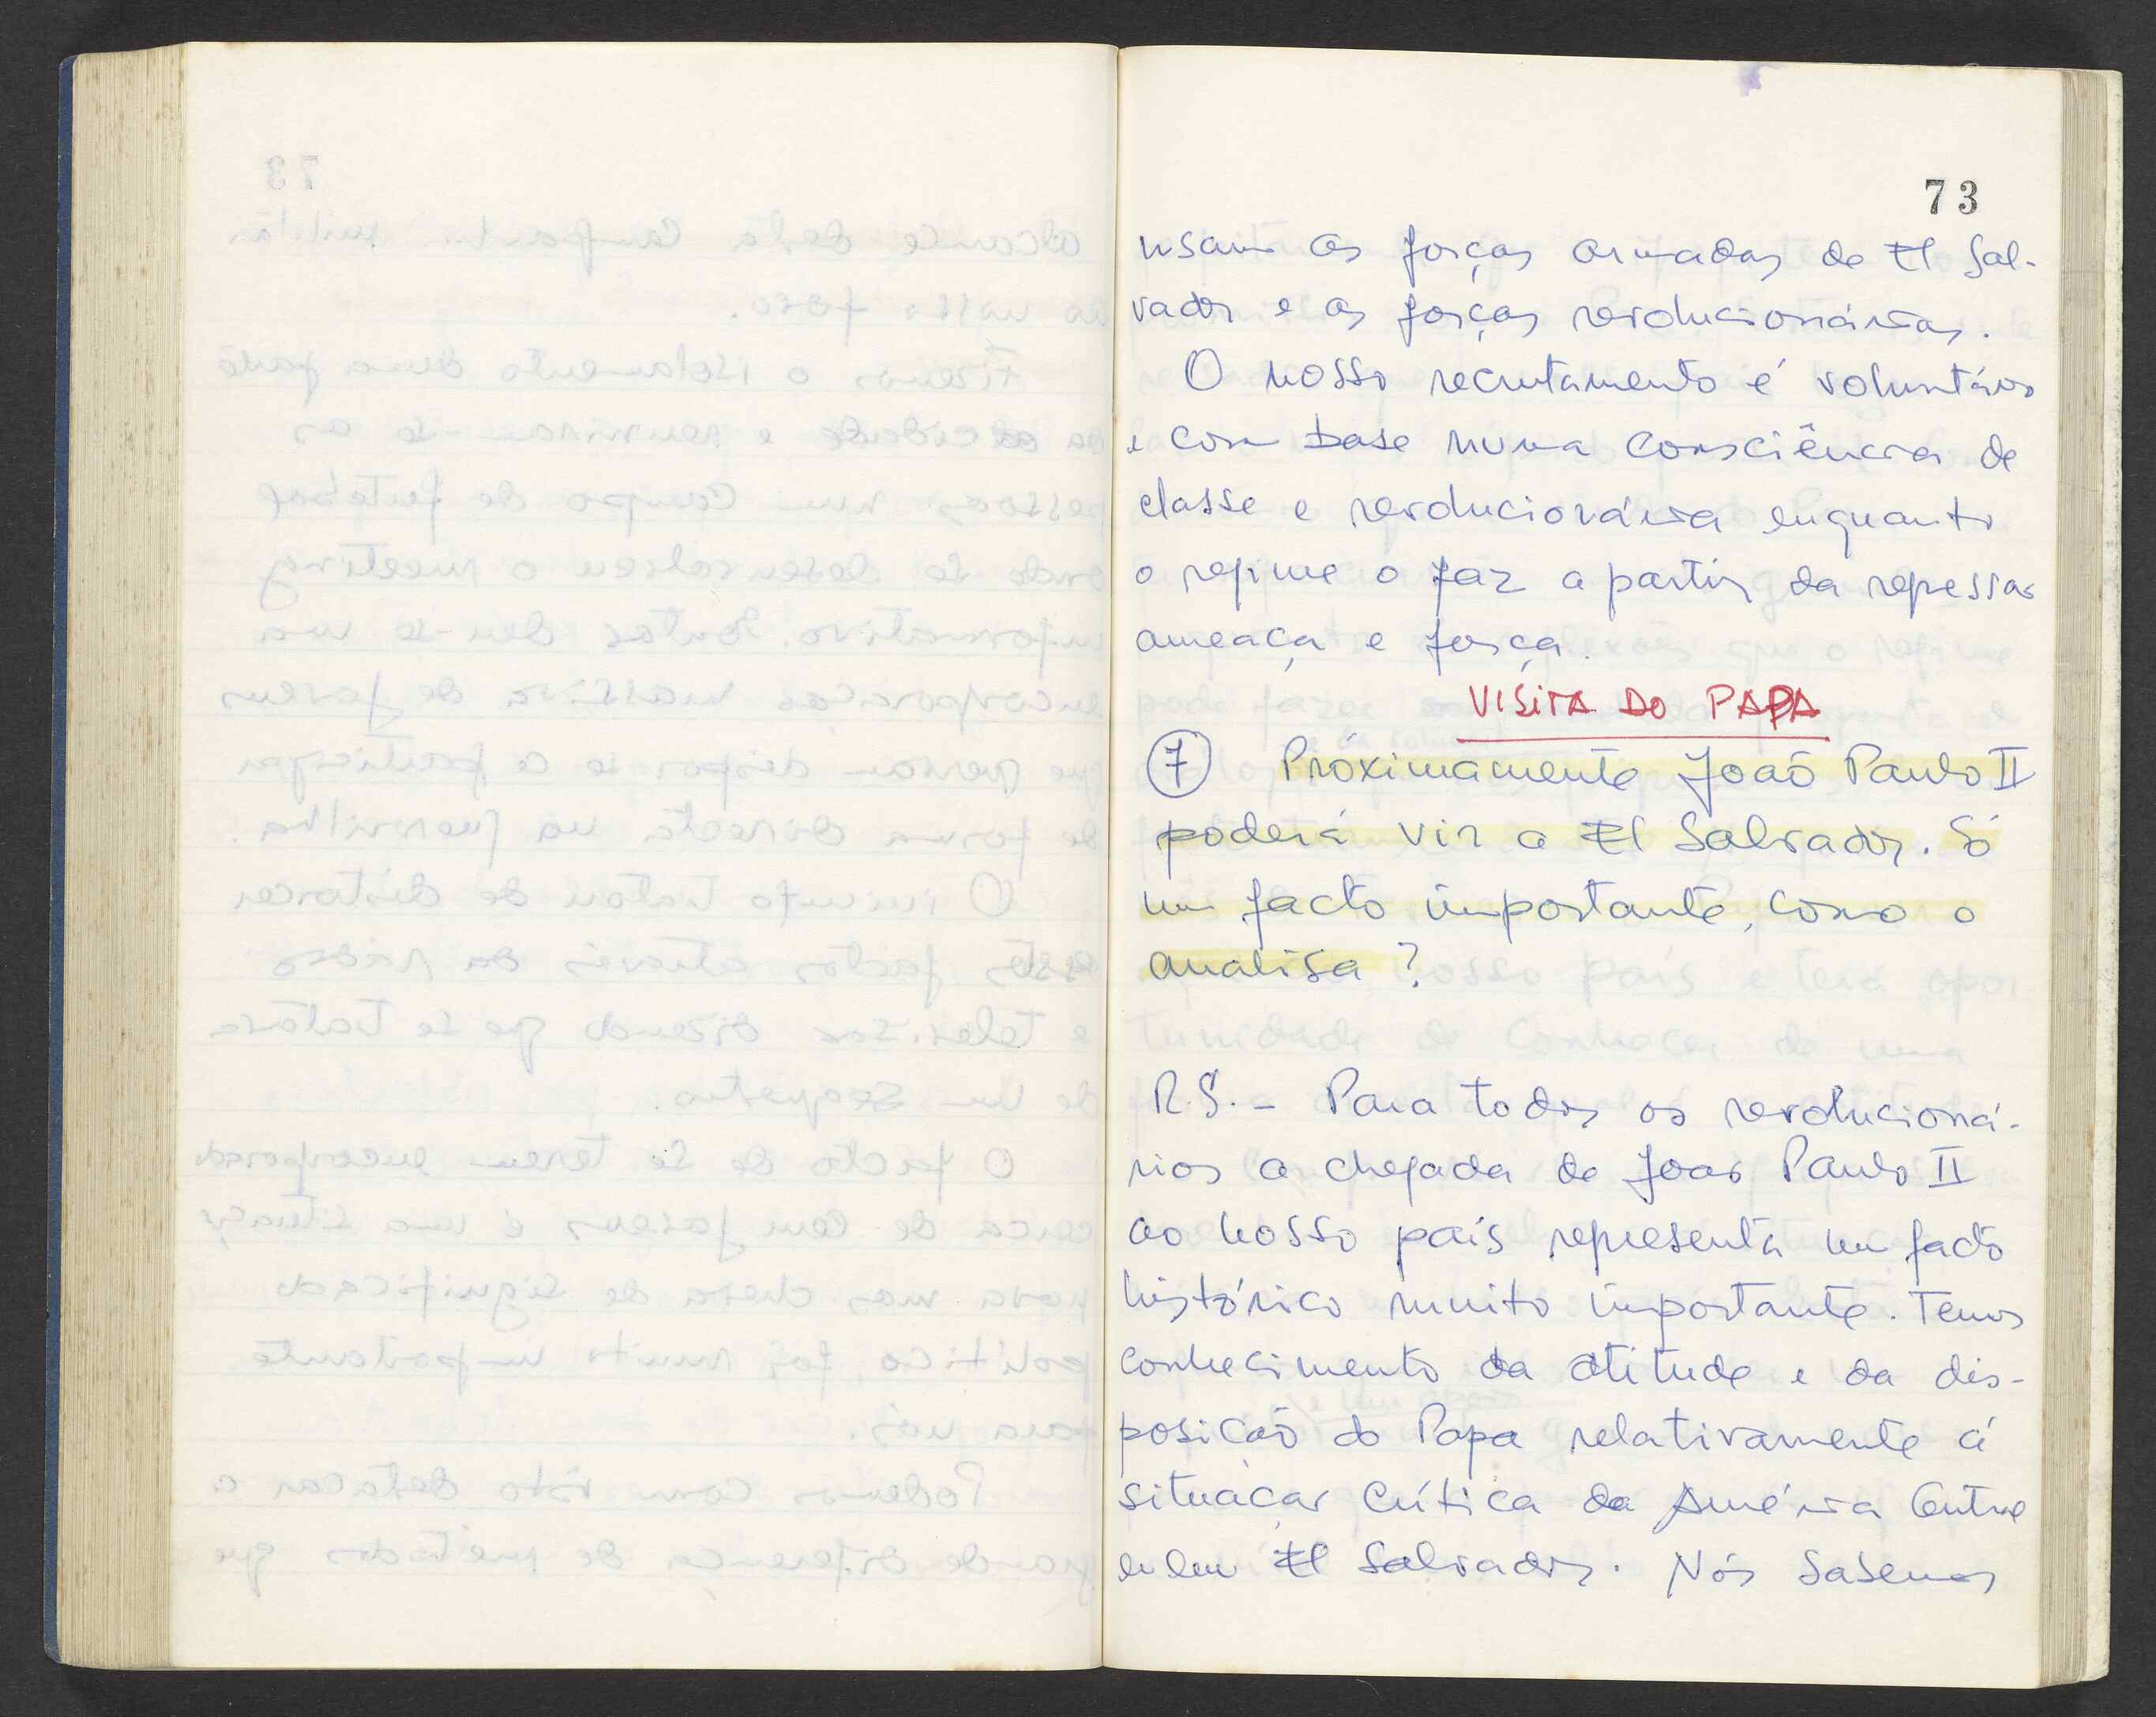 73
usam as forças armadas de El Sal-
vador e as forças revolucionárias.
O nosso recrutamento é voluntário
e com base numa consciência de
classe e revolucionária enquanto
o regime o faz a partir da repessão
ameaça e força.
VISITA DO PAPA
7 Próximamente João Paulo II
poderá vir a El Salvador. Só
um facto importante, como o
analisa?
R.S. - Para todos os revolucioná-
rios a chegada de João Paulo II
ao nosso país representa um facto
histórico muito importante. Temos
conhecimento da atitude e da dis-
posição do Papa relativamente á
situação crítica da América Central
e em El Salvador. Nós sabemos